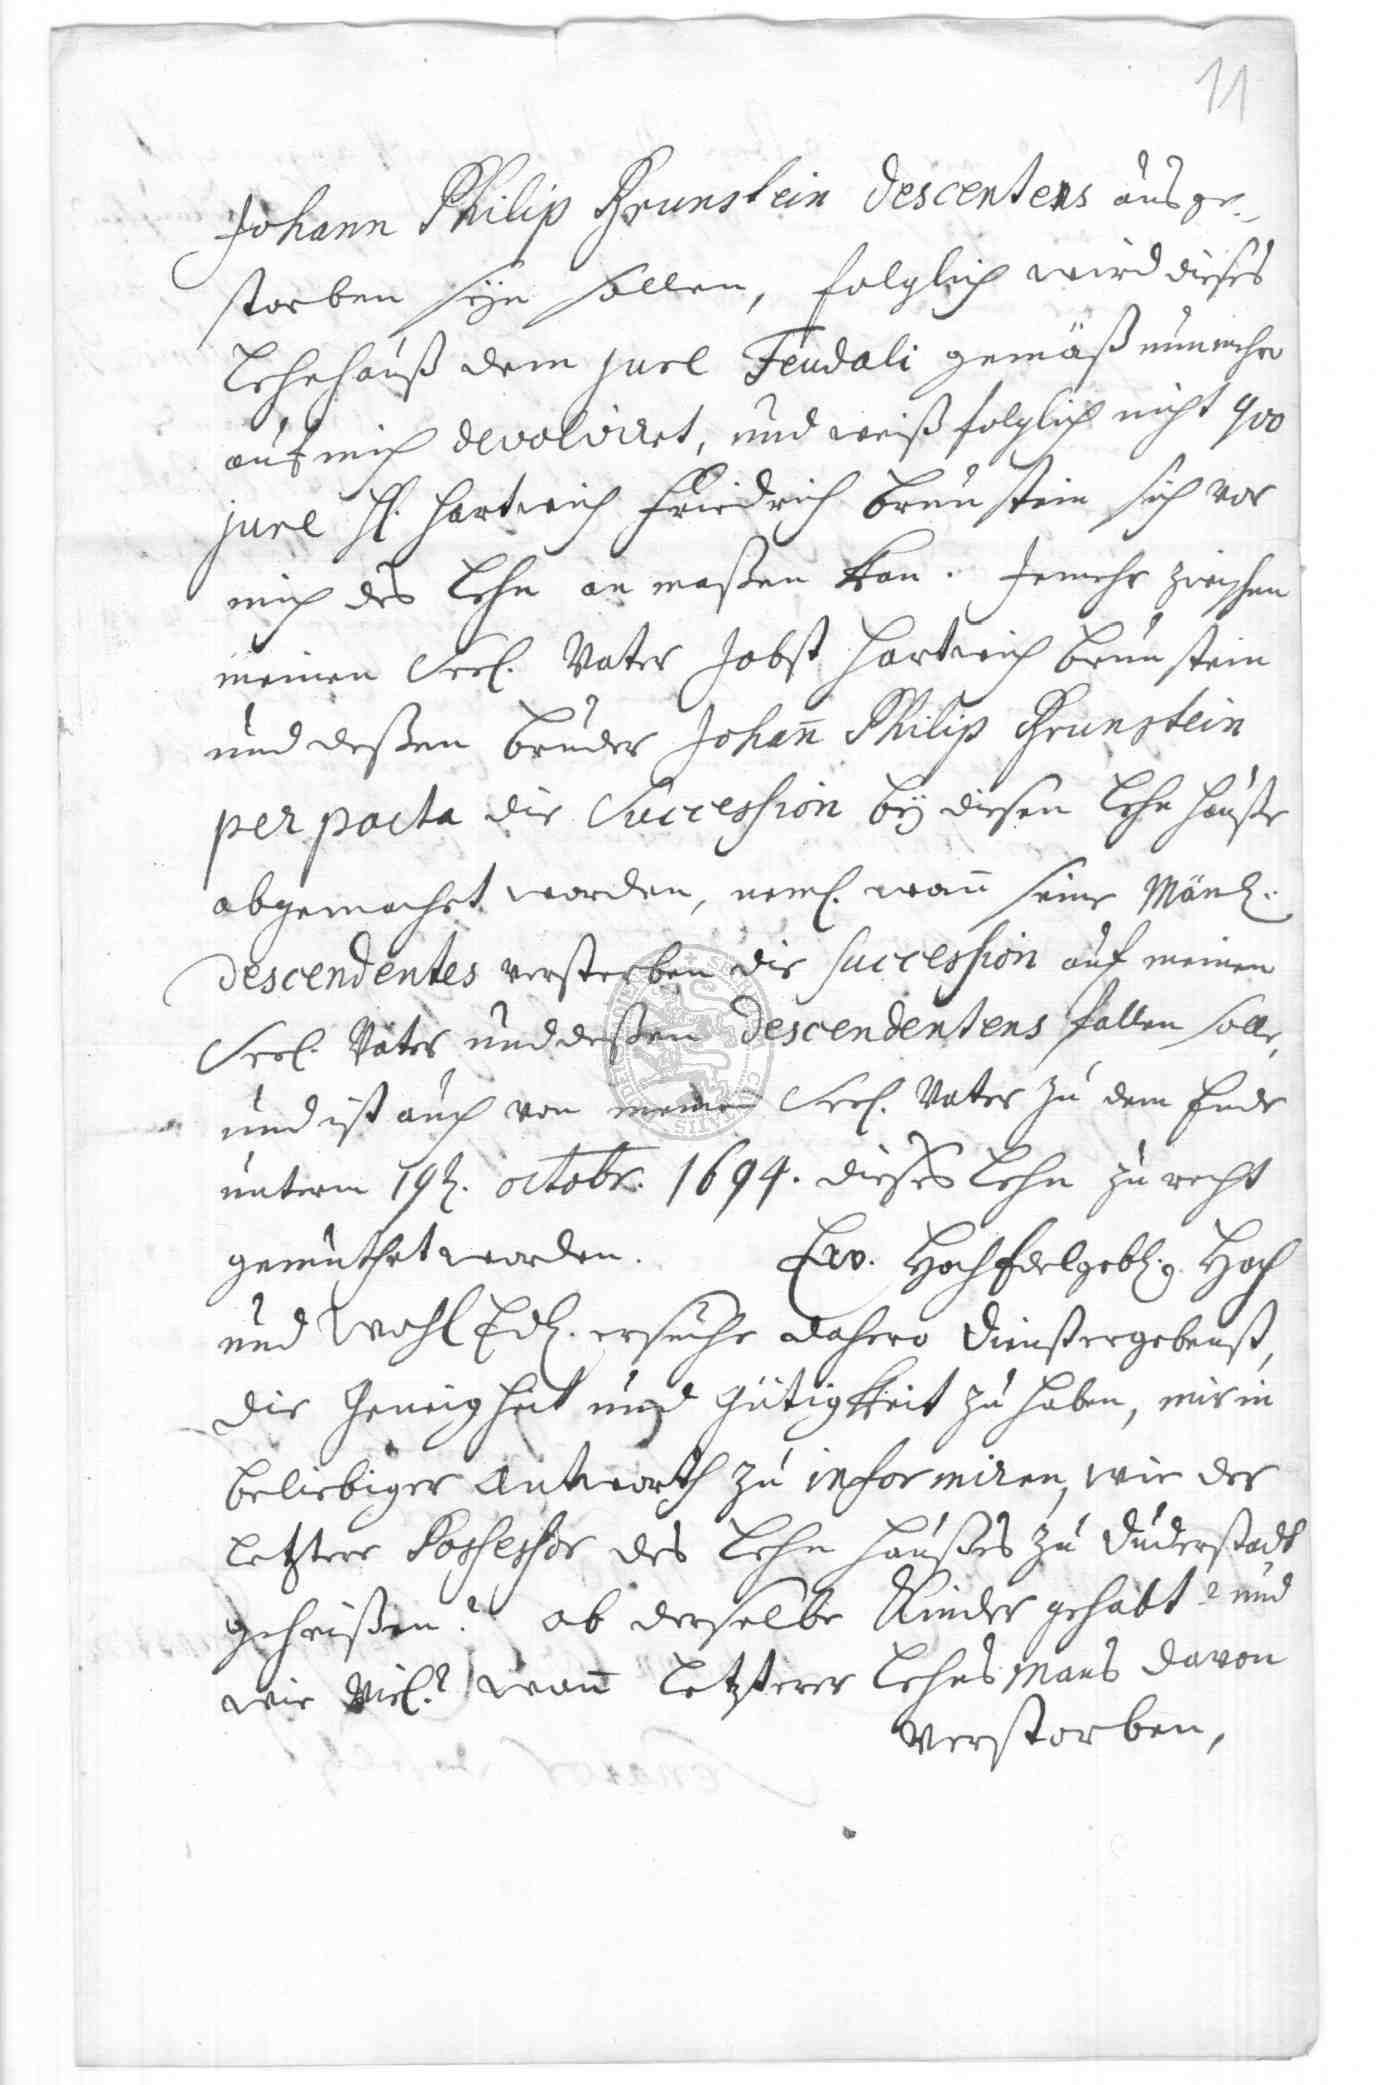 11
Johann Philip Brunstein Descentens ausge-
storben seyn sollen, folglich wird dieses
Lehnhauß dem jure Feudali gemäß nunmehro
auf mich devolviret, und weiß folglich nicht quo
jure H. Hartwich Friedrich Brunstein sich vor
mich des Lehn an maßen kan. Jemehr zwischen
meinen Seel. Vater Jobst Hartwich Brunstein
und deßen Bruder Johan̄ Philip Brunstein
per pacta die Succession bey diesen Lehn Hauße
abgemachet worden, neml. wan̄ seine Mänl.
Descendentes versterben die Succession auf meinen
Seel. Vater und deßen Descendentens fallen solle,
und ist auch von meinen Seel. Vater zu dem Ende
unterm 19t. octobr. 1694. dieses Lehn zu recht
gemuthet worden. Ew. HochEdelgebl. Hoch
und WohlEdl. ersuche dahero dienstergebenst,
die Geneigheit und Gütigkeit zu haben, mir in
beliebiger Antworth zu informiren, wie der
letztere Possessor des Lehn Haußes zu Duderstadt
geheißen? ob derselbe Kinder gehabt? und
wie viel? wan̄ letzterer LehnsMans davon
verstorben,